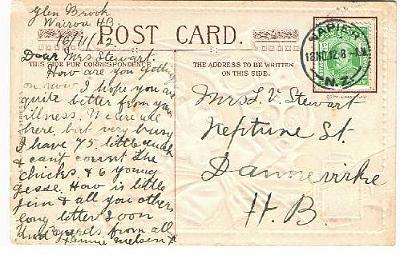 Glen Brook
Wairoa H.B
16/11/12
POST CARD.
THIS SIDE FOR CORRESPONDENCE
THE ADDRESS TO BE WRITTEN
ON THIS SIDE.
Dear Mrs Stewart.
How are you getting
on now. I hope you are
quite better from your
illness. We are all well
here, but very busy
I have 75 little ducks
& can't count the
chicks, & 6 young
geese. How is little
Jim & all you others
long letter soon
Kind Regards from all
NAPIER
18 NO 12
N.Z.
Mrs L. V. Stewart
Neptune St.
Dannevirke
H. B.